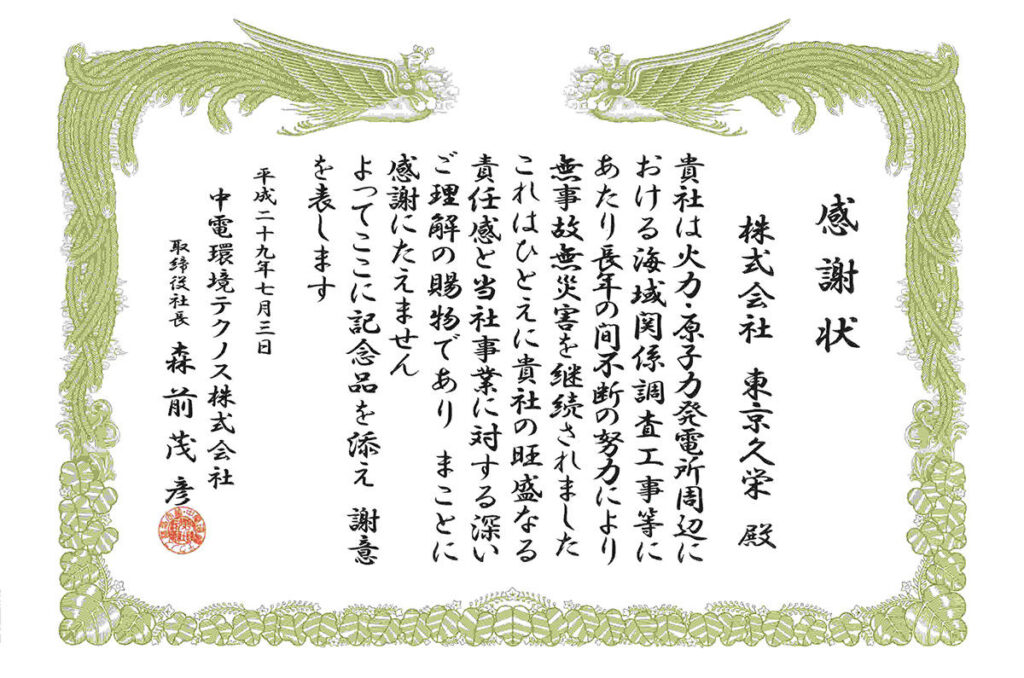 感謝状
株式会社 東京久栄 殿
貴社は火力・原子力発電所周辺に
おける海域関係調査工事等に
あたり長年の間不断の努力により
無事故無災害を継続されました
これはひとえに貴社の旺盛なる
責任感と当社事業に対する深い
ご理解の賜物であり まことに
感謝にたえません
よってここに記念品を添え 謝意
を表します
平成二十九年七月三日
中電環境テクノス株式会社
取締役社長 森前茂彦